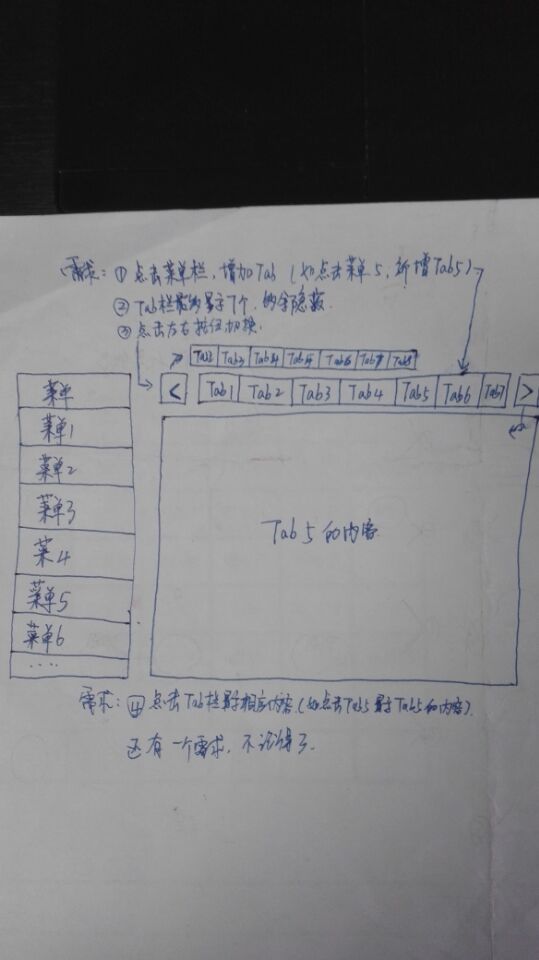 需求：① 点击菜单栏，增加Tab（如点击菜单5，新增Tab5）
② Tab栏最多显示7个，的余隐藏
③ 点击左右按钮切换
Tab2 Tab3 Tab4 Tab5 Tab6 Tab7 Tab8
< Tab1 Tab2 Tab3 Tab4 Tab5 Tab6 Tab7 >
菜单
菜单1
菜单2
菜单3
菜4
菜单5
菜单6
....
Tab5的内容
需求：④ 点击Tab栏显示相应内容（如点击Tab5显示Tab5的内容）
还有一个需求，不记得了.